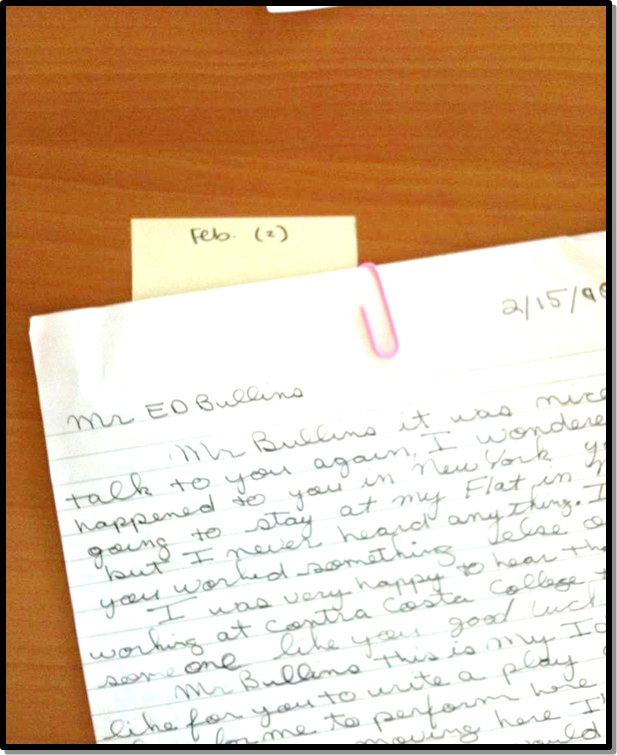 Feb. (2)
2/15/90
Mr ED Bullins
Mr Bullins it was nice
talk to you again, I wondere
happened to you in New York
going to stay at my Flat in
but I never heard anything. I
you worked something else
I was very happy to hear tha
working at Contra Costa College
someone like you good luck
Mr Bullins this is my Id
like for you to write a play
for me to perform here
moving here I'
ould